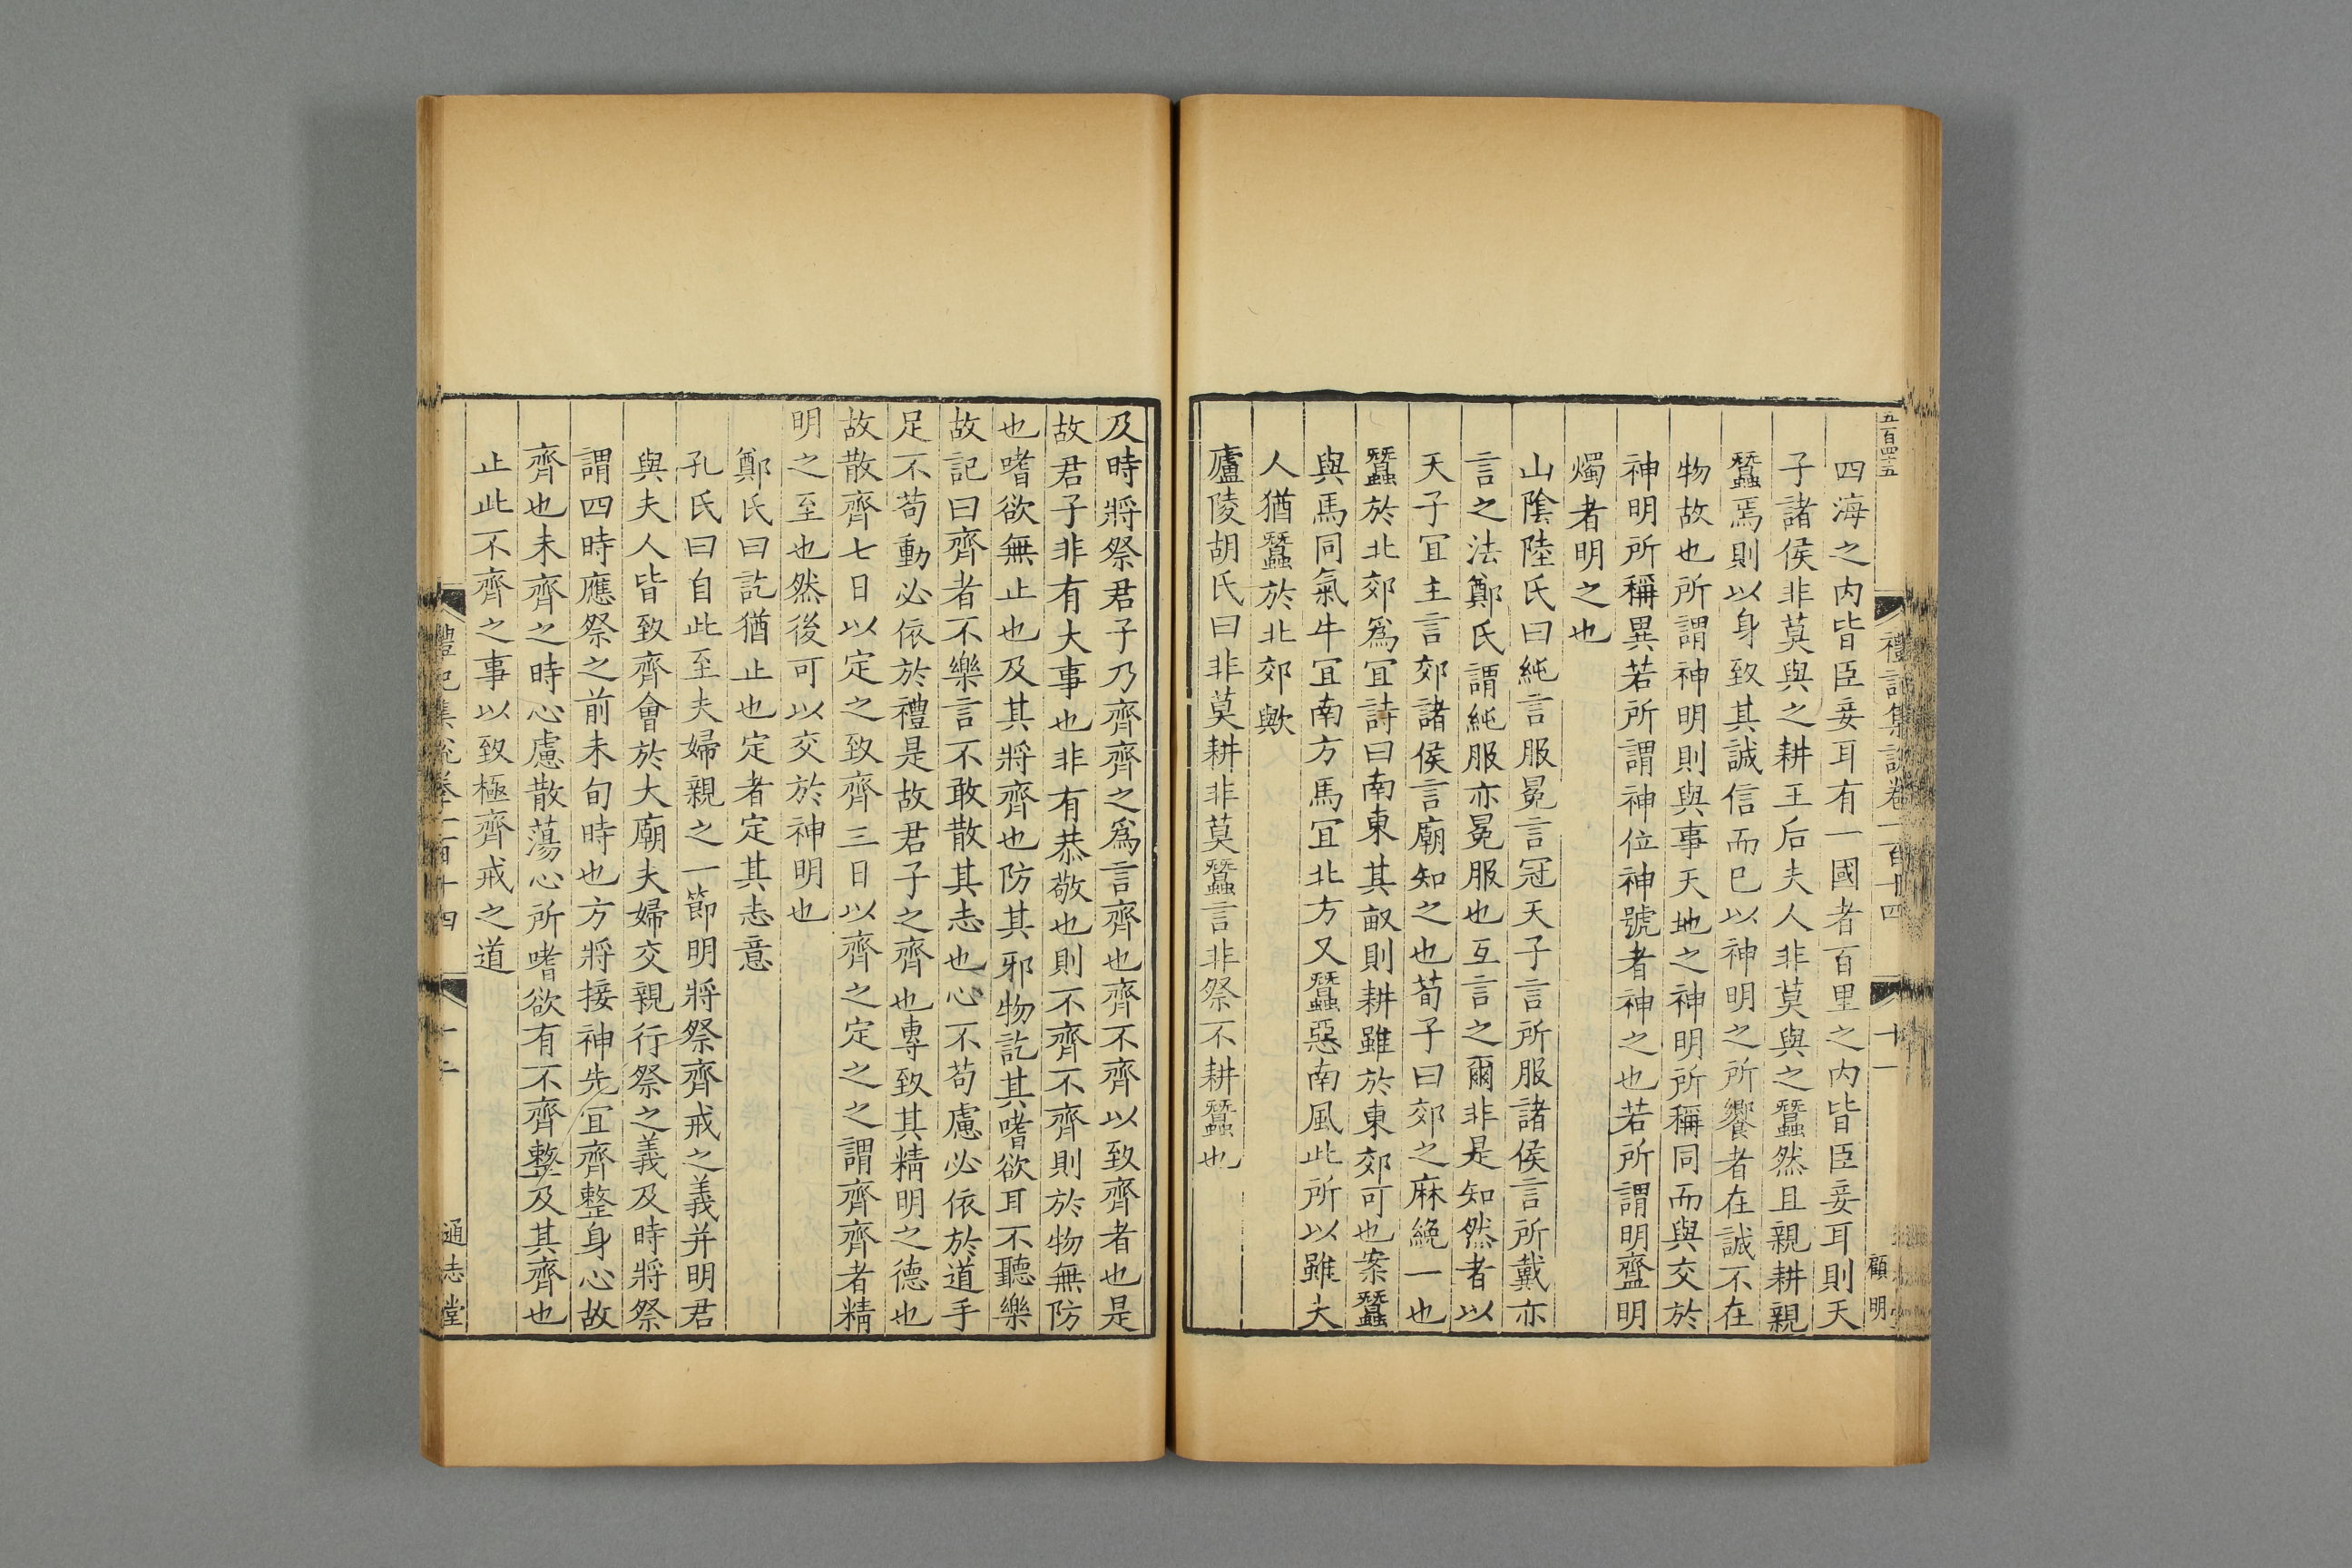 五百四十五
禮記集說卷一百十四
十一
顧明
四海之内皆臣妾耳有一國者百里之内皆臣妾耳則天
子諸侯非莫與之耕王后夫人非莫與之蠶然且親耕親
蠶焉則以身致其誠信而已以神明之所饗者在誠不在
物故也所謂神明則與事天地之神明所稱同而與交於
神明所稱異若所謂神位神號者神之也若所謂明齍明
燭者明之也
山陰陸氏曰純言服冕言冠天子言所服諸侯言所戴亦
言之法鄭氏謂純服亦冕服也互言之爾非是知然者以
天子冝主言郊諸侯言廟知之也荀子曰郊之麻絻一也
蠶於北郊爲冝詩曰南東其畝則耕雖於東郊可也案蠶
與馬同氣牛冝南方馬冝北方又蠶惡南風此所以雖夫
人猶蠶於北郊歟
廬陵胡氏曰非莫耕非莫蠶言非祭不耕蠶也
及時將祭君子乃齊齊之爲言齊也齊不齊以致齊者也是
故君子非有大事也非有恭敬也則不齊不齊則於物無防
也嗜欲無止也及其將齊也防其邪物訖其嗜欲耳不聽樂
故記曰齊者不樂言不敢散其志也心不苟慮必依於道手
足不苟動必依於禮是故君子之齊也專致其精明之德也
故散齊七日以定之致齊三日以齊之定之之謂齊齊者精
明之至也然後可以交於神明也
鄭氏曰訖猶止也定者定其志意
孔氏曰自此至夫婦親之一節明將祭齊戒之義并明君
與夫人皆致齊會於大廟夫婦交親行祭之義及時將祭
謂四時應祭之前未旬時也方將接神先冝齊整身心故
齊也未齊之時心慮散蕩心所嗜欲有不齊整及其齊也
止此不齊之事以致極齊戒之道
禮記集說卷一百十四
十二
通志堂